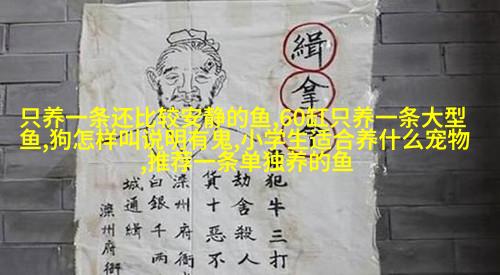 緝拿
只养一条还比较安静的鱼,60缸只养一条大型
鱼,狗怎样叫说明有鬼,小学生适合养什么宠物
,推荐一条单独养的鱼
犯牛三打
劫舍殺人
貨十惡不
滦州府衙
白銀千兩
城通緝
滦州府衙